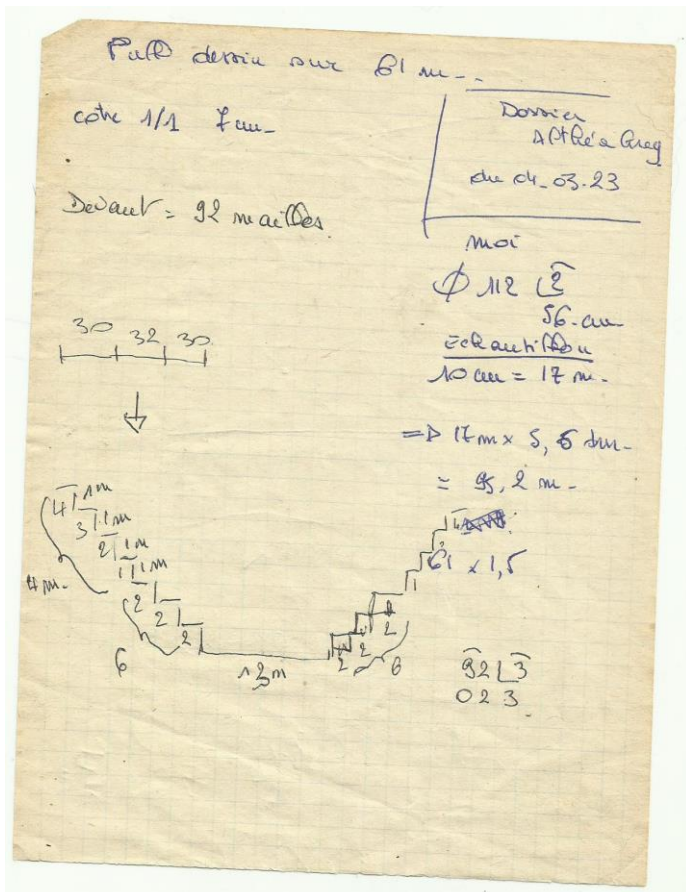 Pull dessin sur 61 m--
côte 1/1 7 cm-
Dossier
Althéa Greg
du 04-03.23
Devant = 92 mailles.
moi
∅ 112 | 2
56-cm-
Echantillon
10 cm = 17 m-
30 32 30
=> 17 m x 5, 6 dm-
= 95, 2 m-
4 1m
3 1m
2 1m
1 1m
4 m-
2
2
2
6
2
2
2
6
1
4
61 x 1,5
92 | 3
0 2 3